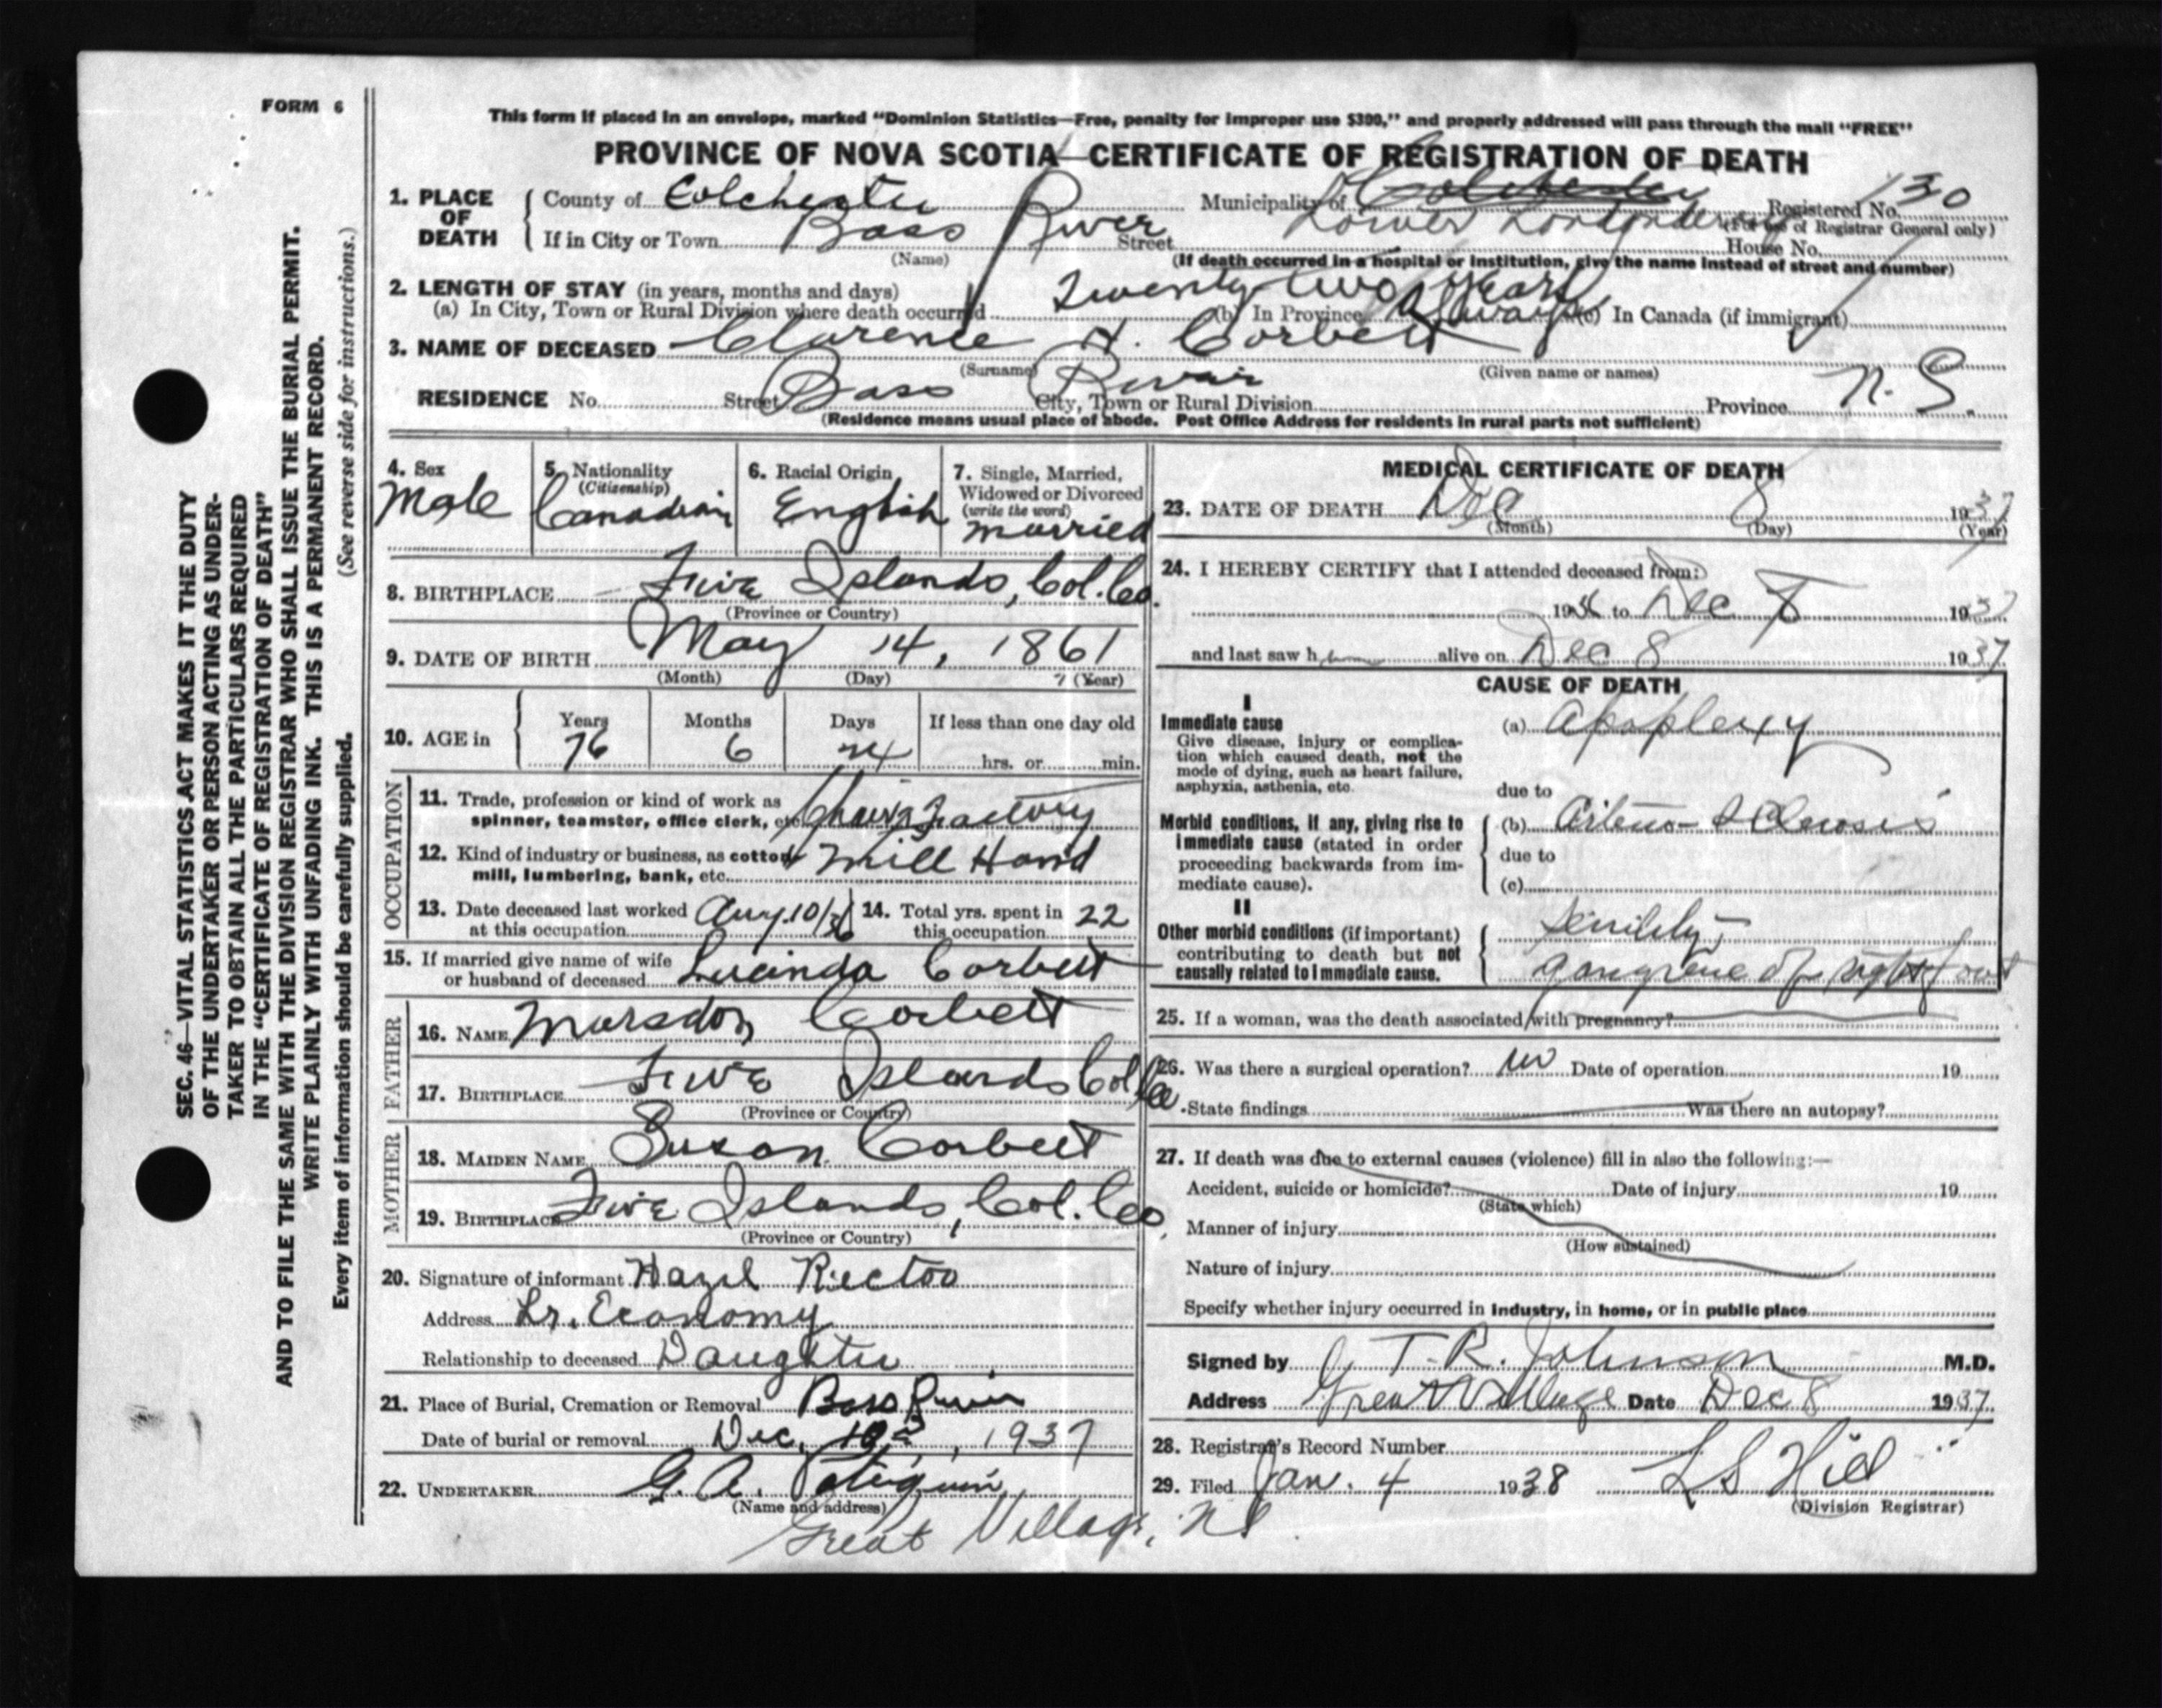 FORM 6
This form if placed in an envelope, marked "Dominion Statistics—Free, penalty for improper use $300," and properly addressed will pass through the mail "FREE"
PROVINCE OF NOVA SCOTIA—CERTIFICATE OF REGISTRATION OF DEATH
1. PLACE OF DEATH
County of Colchester Municipality of Colchester Registered No. 130
Lower Londonderry (For use of Registrar General only)
If in City or Town Bass River Street House No.
(Name) (If death occurred in a hospital or institution, give the name instead of street and number)
2. LENGTH OF STAY (in years, months and days)
(a) In City, Town or Rural Division where death occurred Twenty-two years (b) In Province Always (c) In Canada (if immigrant)
3. NAME OF DECEASED Clarence H. Corbett
(Surname) (Given name or names)
RESIDENCE No. Street Bass River City, Town or Rural Division Province N.S.
(Residence means usual place of abode. Post Office Address for residents in rural parts not sufficient)
4. Sex Male
5. Nationality (Citizenship) Canadian
6. Racial Origin English
7. Single, Married, Widowed or Divorced (write the word) married
8. BIRTHPLACE Five Islands, Col. Co.
(Province or Country)
9. DATE OF BIRTH May 14, 1861
(Month) (Day) 7 (Year)
10. AGE in Years 76 Months 6 Days 24 If less than one day old hrs. or min.
OCCUPATION
11. Trade, profession or kind of work as spinner, teamster, office clerk, etc. Chair Factory
12. Kind of industry or business, as cotton mill, lumbering, bank, etc. Mill Hand
13. Date deceased last worked at this occupation Aug. 10/36
14. Total yrs. spent in this occupation 22
15. If married give name of wife or husband of deceased Lucinda Corbett
FATHER
16. NAME Marsdon Corbett
17. BIRTHPLACE Five Islands Col. Co.
(Province or Country)
MOTHER
18. MAIDEN NAME Susan Corbett
19. BIRTHPLACE Five Islands, Col. Co.
(Province or Country)
20. Signature of informant Hazel Rector
Address Lr. Economy
Relationship to deceased Daughter
21. Place of Burial, Cremation or Removal Bass River
Date of burial or removal Dec. 10, 1937
22. UNDERTAKER G. A.
(Name and address)
Great Village, NS
MEDICAL CERTIFICATE OF DEATH
23. DATE OF DEATH Dec 8 1937
(Month) (Day) (Year)
24. I HEREBY CERTIFY that I attended deceased from:
1936 to Dec 8 1937
and last saw him alive on Dec 8 1937
CAUSE OF DEATH
I
Immediate cause
Give disease, injury or complication which caused death, not the mode of dying, such as heart failure, asphyxia, asthenia, etc.
(a) Apoplexy
due to
Morbid conditions, if any, giving rise to immediate cause (stated in order proceeding backwards from immediate cause).
(b) Arterio-sclerosis
due to
(c)
II
Other morbid conditions (if important) contributing to death but not causally related to immediate cause.
Senility
gangrene of right foot
25. If a woman, was the death associated with pregnancy?
26. Was there a surgical operation? no Date of operation 19
State findings Was there an autopsy?
27. If death was due to external causes (violence) fill in also the following:—
Accident, suicide or homicide? Date of injury 19
(State which)
Manner of injury
(How sustained)
Nature of injury
Specify whether injury occurred in industry, in home, or in public place
Signed by T. R. Johnson M.D.
Address Great Village Date Dec 8 1937
28. Registrar's Record Number
29. Filed Jan. 4 1938 L S Hill
(Division Registrar)
SEC. 46—VITAL STATISTICS ACT MAKES IT THE DUTY
OF THE UNDERTAKER OR PERSON ACTING AS UNDER-
TAKER TO OBTAIN ALL THE PARTICULARS REQUIRED
IN THE "CERTIFICATE OF REGISTRATION OF DEATH"
AND TO FILE THE SAME WITH THE DIVISION REGISTRAR WHO SHALL ISSUE THE BURIAL PERMIT.
WRITE PLAINLY WITH UNFADING INK. THIS IS A PERMANENT RECORD.
Every item of information should be carefully supplied. (See reverse side for instructions.)